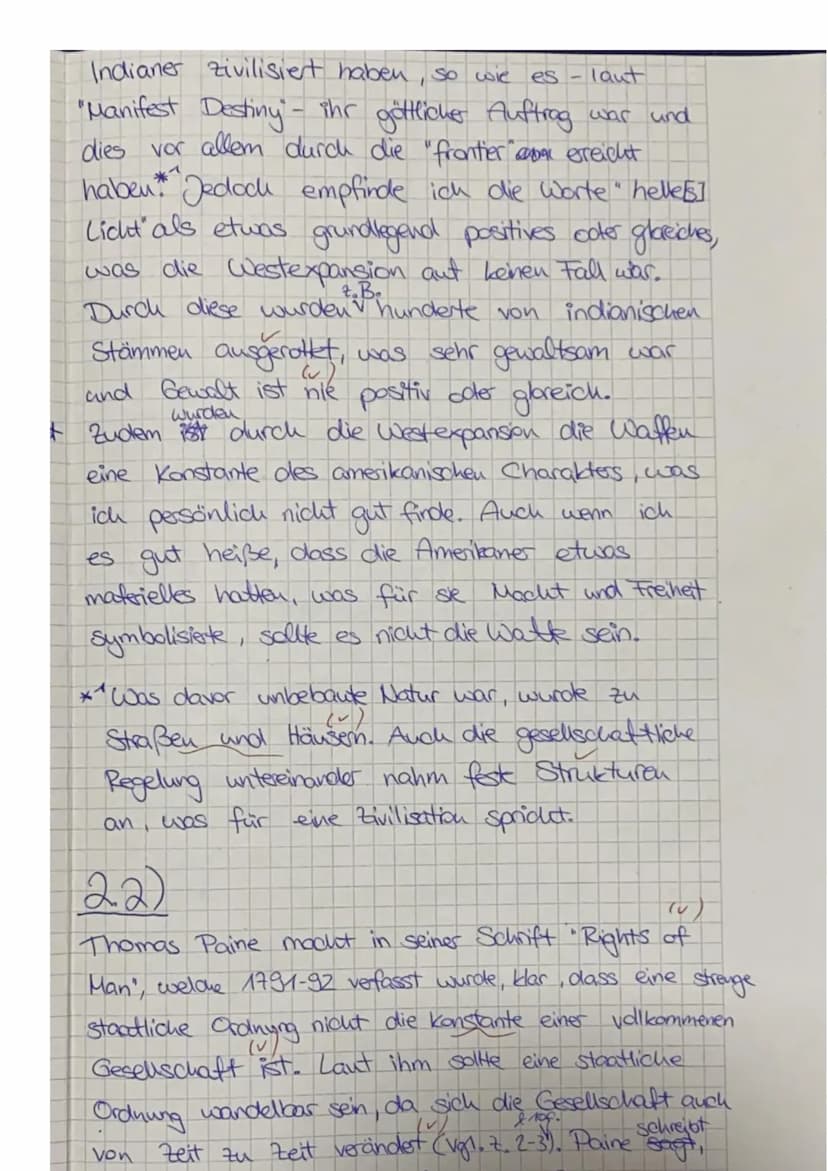 Indianer zivilisiert haben, so wie es - laut
"Manifest Destiny" - ihr göttlicher Auftrag war und
dies vor allem durch die "frontier" erreicht
haben.*1 Jedoch empfinde ich die Worte "helle[s]
Licht" als etwas grundlegend positives oder gloreiches,
was die Westexpansion auf keinen Fall war.
z.B.
Durch diese wurden √ hunderte von indianischen
Stämmen ausgerottet, was sehr gewaltsam war
(✓)
und Gewalt ist nie positiv oder gloreich.
wurden
+ Zudem ist durch die Westexpansion die Waffen
eine Konstante des amerikanischen Charakters, was
ich persönlich nicht gut finde. Auch wenn ich
es gut heiße, dass die Amerikaner etwas
materielles hatten, was für sie Macht und Freiheit
symbolisierte, sollte es nicht die Waffe sein.
*1 Was davor unbebaute Natur war, wurde zu
(✓)
Straßen und Häusern. Auch die gesellschaftliche
Regelung untereinander nahm feste Strukturen
an, was für eine Zivilisation spricht.
2.2)
(✓)
Thomas Paine macht in seiner Schrift "Rights of
Man", welche 1791-92 verfasst wurde, klar, dass eine strenge
staatliche Ordnung nicht die Konstante einer vollkommenen
(✓)
Gesellschaft ist. Laut ihm sollte eine staatliche
Ordnung wandelbar sein, da sich die Gesellschaft auch
(✓)
schreibt
von Zeit zu Zeit verändert (vgl. Z. 2-3). Paine sagt,